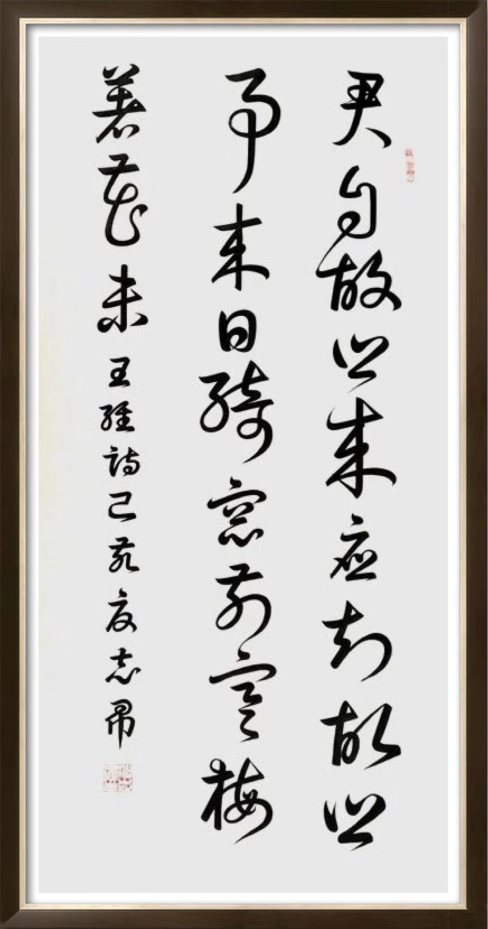 君自故乡来应知故乡
事来日绮窗前寒梅
著花未王维诗己亥夏志